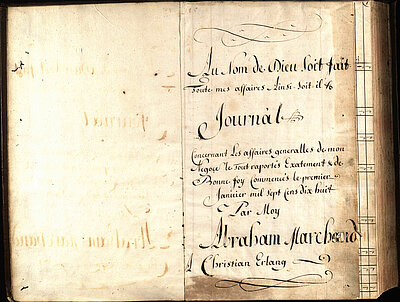 Au Nom de Dieu Soit fait
Toute mes affaires Ainsi soit il
Journal
Concernant Les affaires generalles de mon
Negoce le Tout raportés Exatement & de
Bonne foy Commencés le premier
Janvier mil sept Cens dix huit
Par Moy
Abraham Marchand
A Christian Erlang